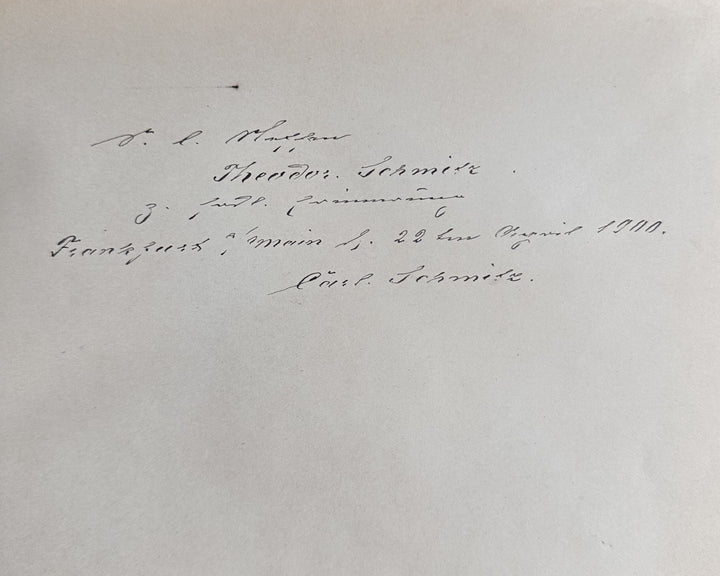 S. l. Neffen
Theodor. Schmitz
z. frdl. Erinnerung
Frankfurt a/main d. 22ten April 1900.
Carl. Schmitz.